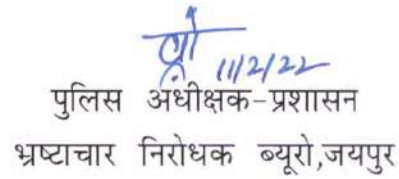 11/2/22
पुलिस अधीक्षक-प्रशासन
भ्रष्टाचार निरोधक ब्यूरो,जयपुर